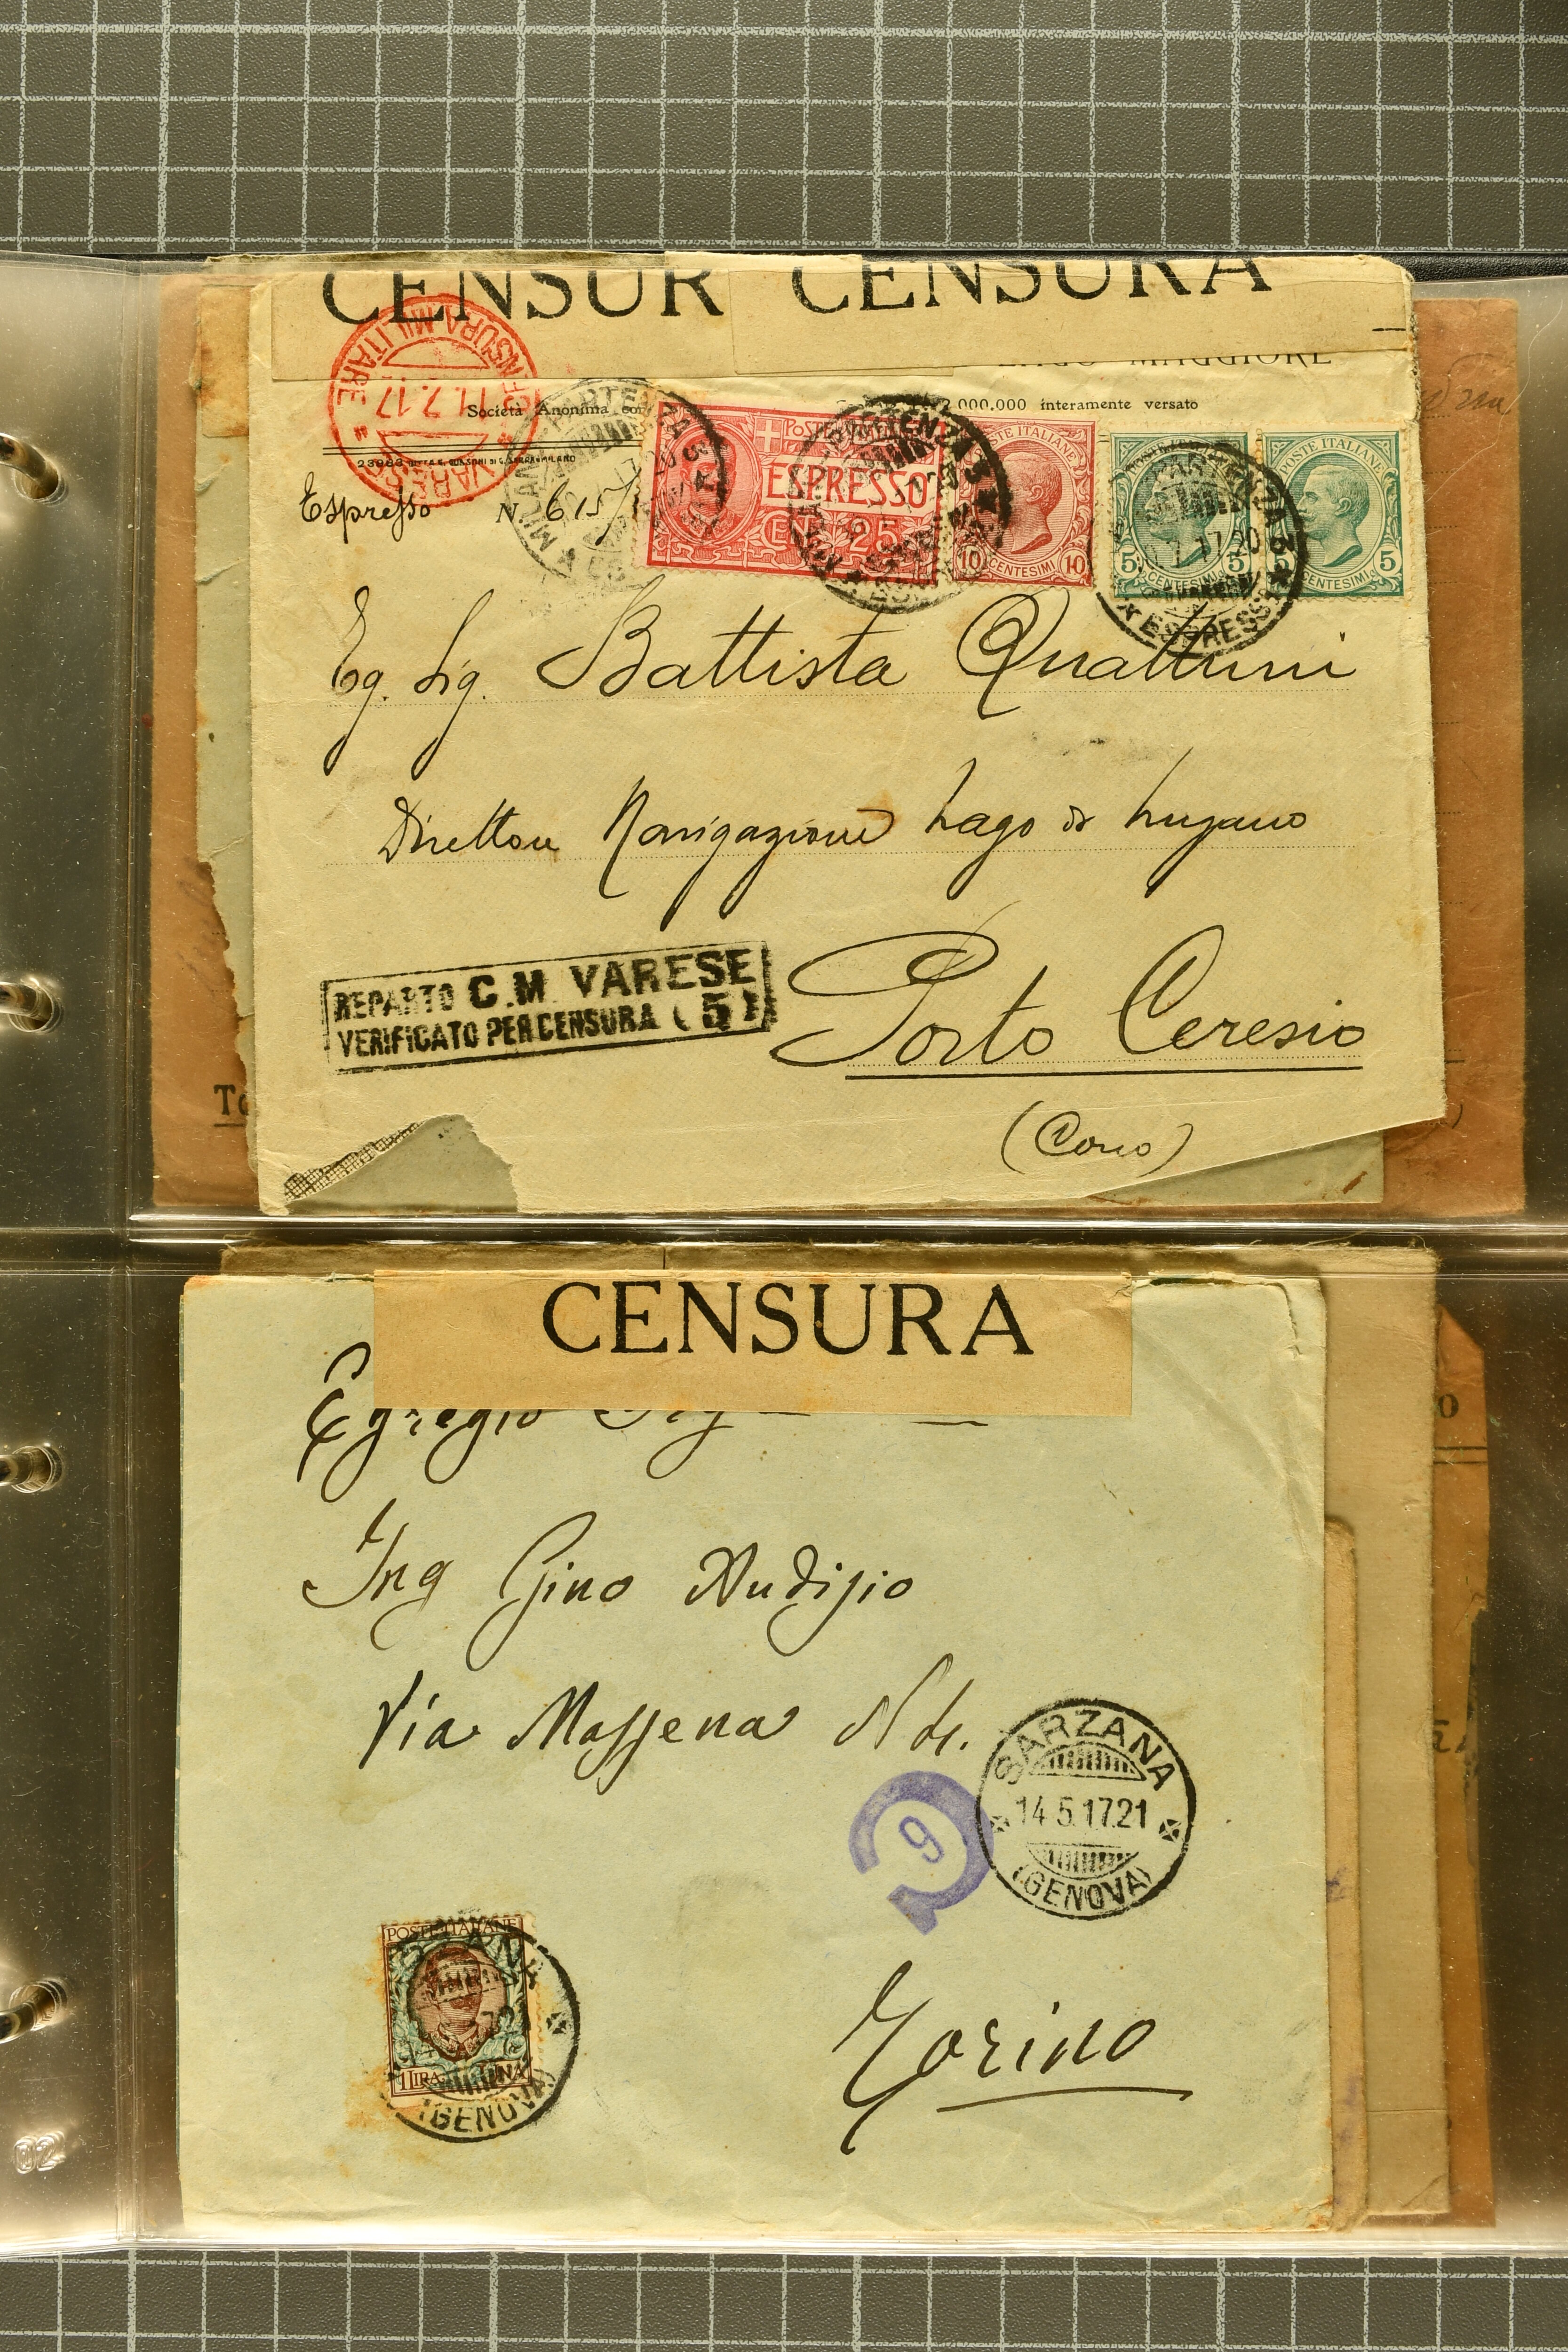 CENSUR CENSURA
MAGGIORE
CENSURA MILITARE
11.7.17
Società Anonima
2.000.000 interamente versato
Espresso N. 615
POSTE ITALIANE
ESPRESSO
CENT. 25
POSTE ITALIANE
10 CENTESIMI 10
5 CENTESIMI 5
POSTE ITALIANE
CENTESIMI 5
PARTENZA
ESPRESSI
Eg. Sig. Battista Quattrini
Direttore Navigazione Lago di Lugano
REPARTO C.M. VARESE
VERIFICATO PER CENSURA (5)
Porto Ceresio
(Como)
CENSURA
Egregio
Ing Gino
Via Massena N
SARZANA
14 5.17.21
(GENOVA)
9
POSTE ITALIANE
1 LIRA UNA
(GENOVA)
Torino
02